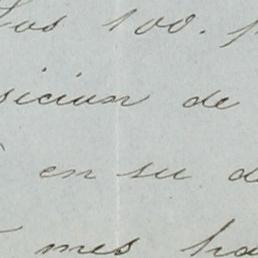 Los 100. p
sicion de
en su d
mes ha